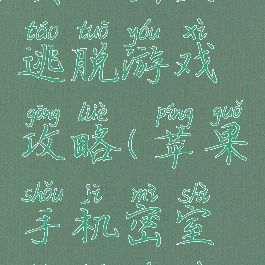 táo tuō yóu xì
逃脱游戏
gōng lüè píng guǒ
攻略(苹果
shǒu jī mì shì
手机密室